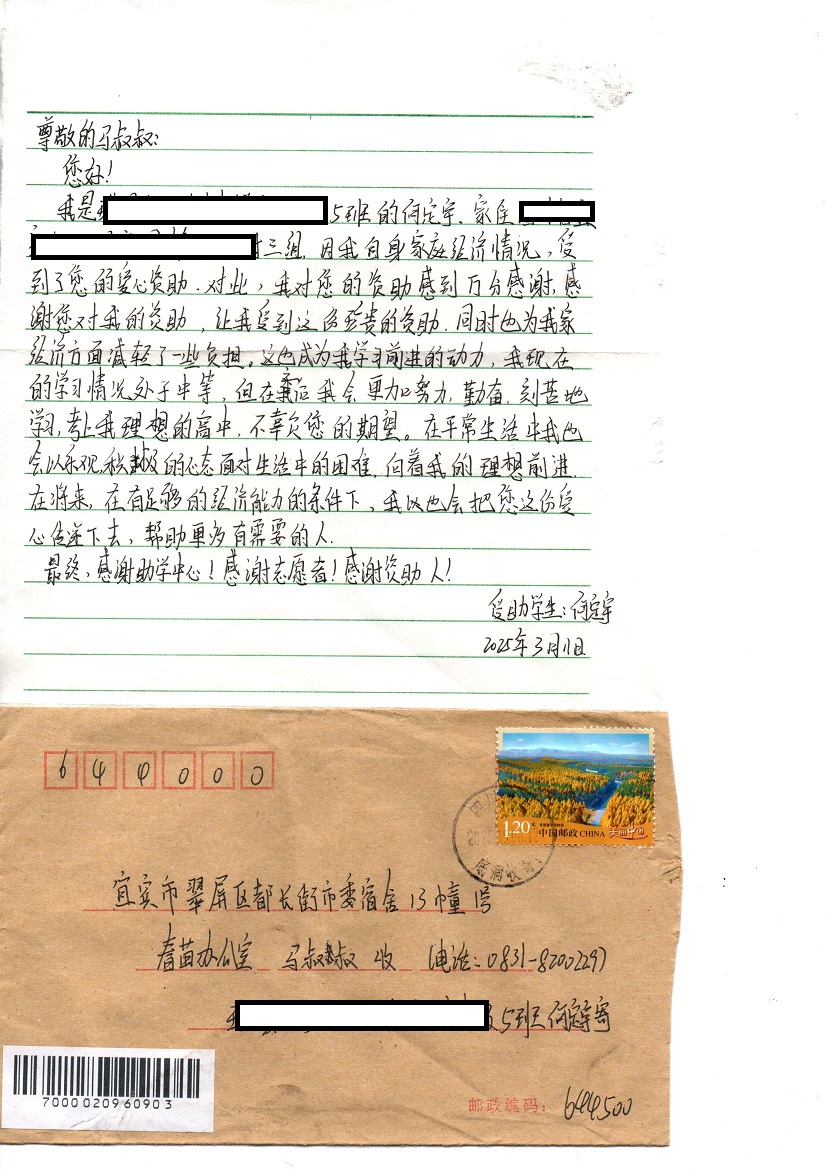 尊敬的马叔叔:
您好!
我是 5班的何定宇、家住
村三组、因我自身家庭经济情况,受
到了您的爱心资助.对此,我对您的资助感到万分感谢,感
谢您对我的资助,让我受到这份至贵的资助.同时也为我家
经济方面减轻了一些负担。这也成为我学习前进的动力,我现在
的学习情况处于中等,但在 我会更加努力,勤奋.刻苦地
学习,考上我理想的高中,不辜负您的期望。在平常生活中我也
会以乐观,积极的心态面对生活中的困难.向着我的理想前进.
在将来,在有足够的经济能力的条件下,我以也会把您这份爱
心传递下去,帮助更多有需要的人.
最终,感谢助学中心!感谢志愿者!感谢资助人!
受助学生:何定宇
2025年3月11日
644000
1.20元 中国邮政 CHINA 美丽中国
宜宾市翠屏区都长街市委宿舍13幢1号
春苗办公室 马叔叔 收 (电话:0831-8200229)
5班 何定宇寄
7000020960903
邮政编码:644500